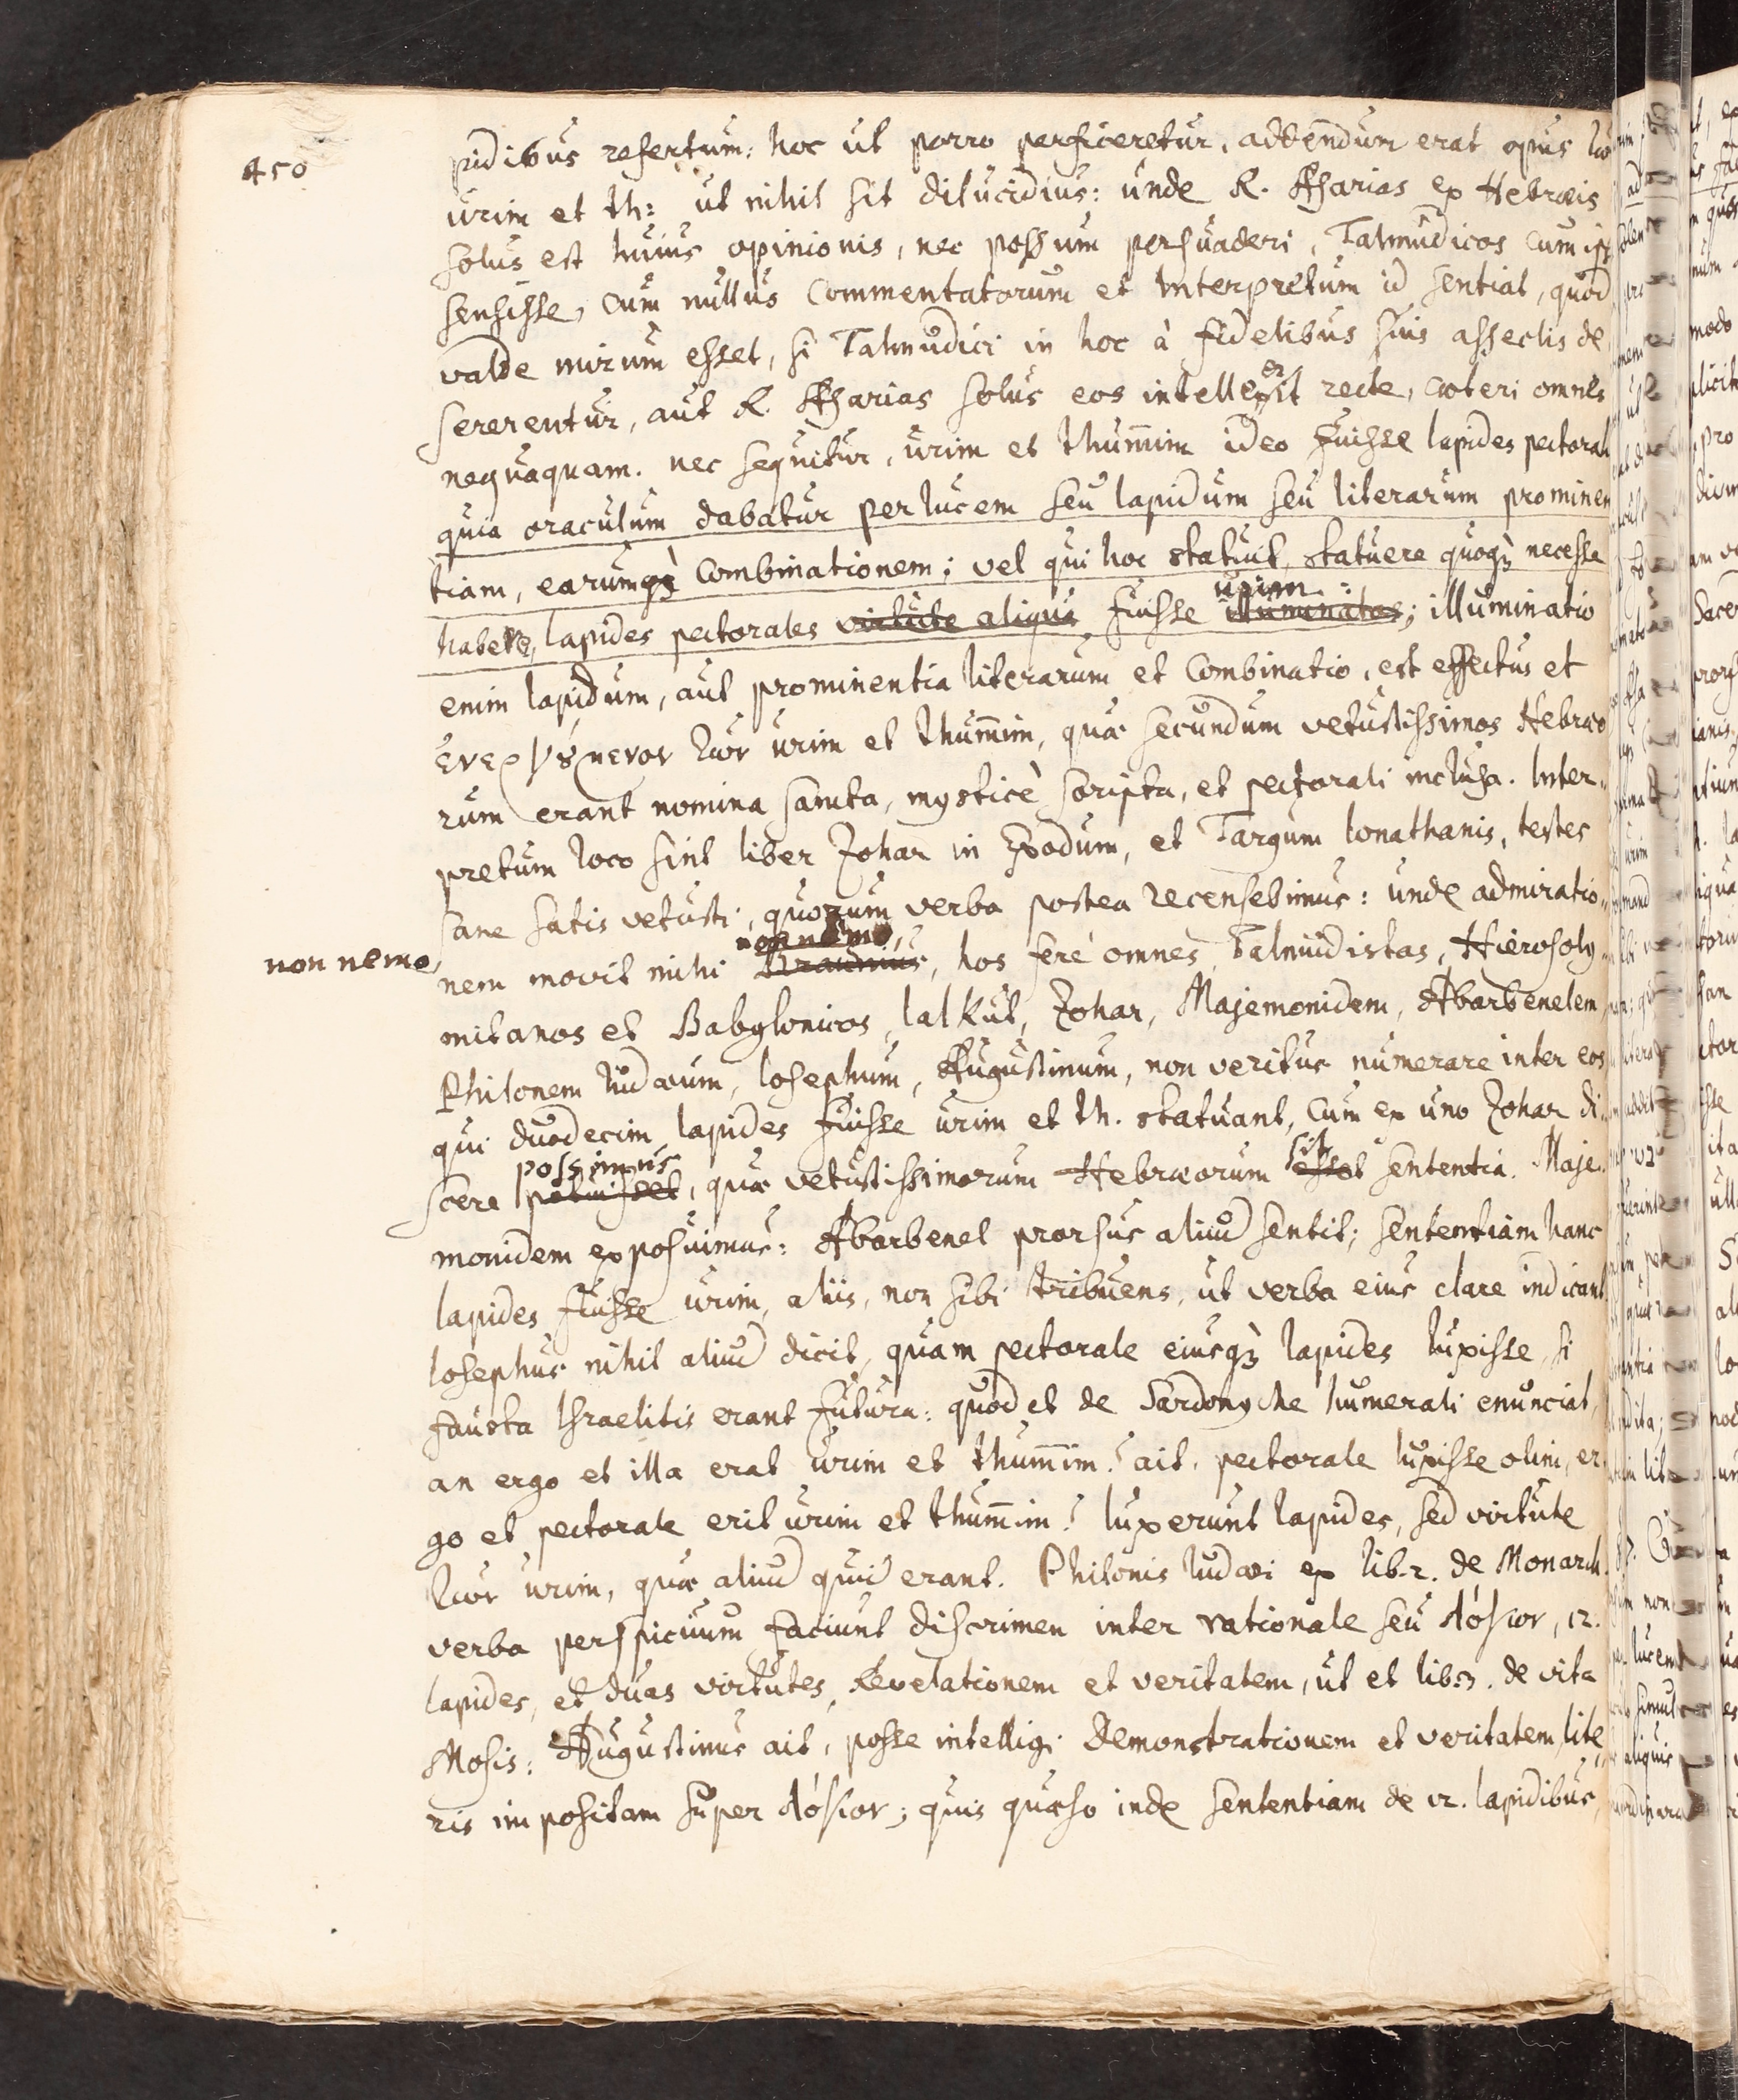 450
pidibus refertum: hoc ut porro perficeretur, addendum erat opus τῶν
urim et th: ut nihil sit dilucidius: unde R. Asarias ex Hebræis
solus est huius opinionis, nec possum persuaderi, Talmudicos cum ipso
sensisse, cum nullus Commentatorum et Interpretum id sentiat, quod
valde mirum esset, si Talmudici in hoc à fidelibus suis asseclis de
sererentur, aut R. Asarias solus eos intellexerit recte, cæteri omnes
nequaquam. nec sequitur, urim et thum̄im ideo fuisse lapides pectoral
quia oraculum dabatur per lucem seu lapidum seu literarum prominen
tiam, earumq̀ combinationem; vel qui hoc statuit, statuere quoq; necesse
urim
habere, lapides pectorales virtute aliqua fuisse illuminatos; illuminatio
enim lapidum, aut prominentia literarum et combinatio, est effectus et
ἐνεργούμενον τῶν urim et thum̄im, quæ secundum vetustissimos Hebræo
rum erant nomina sancta, mysticè scripta, et pectorali inclusa. Inter-
pretum loco sint liber Zohar in Exodum, et Targum Ionathanis, testes
sane satis vetusti, quorum verba postea recensebimus: unde admiratio-
non nemo,
non nemo
nem movit mihi Braunius, hos ferè omnes, Talmudistas, Hierosoly-
mitanos et Babylonicos, Ialkut, Zohar, Majemonidem, Abarbenelem,
Philonem Iudæum, Iosephum, Augustinum, non veritus numerare inter eos
qui duodecim lapides fuisse urim et th. statuant, cum ex uno Zohar di-
possimus sit
scere potuisset, quæ vetustissimorum Hebræorum esset sententia. Maje-
monidem exposuimus: Abarbenel prorsus aliud sentit; sententiam hanc
lapides fuisse urim, aliis, non sibi tribuens, ut verba eius clare indicant.
Iosephus nihil aliud dicit, quam pectorale eiusq̀; lapides luxisse, si
fausta Israelitis erant futura: quod et de Sardonyche humerali enunciat,
an ergo et illa erat urim et thum̄im? ait, pectorale luxisse olim, er
go et pectorale erit urim et thum̄im? luxerunt lapides, sed virtute
τῶν urim, quæ aliud quid erant. Philonis Iudæi ex lib. 2. de Monarch.
verba perspicuum faciunt discrimen inter rationale seu λόγιον, 12.
lapides, et duas virtutes, Revelationem et veritatem, ut et lib. 3. de vita
Mosis: Augustinus ait, posse intelligi Demonstrationem et veritatem, lite
ris impositam super λόγιον; quis quæso inde sententiam de 12. lapidibus,